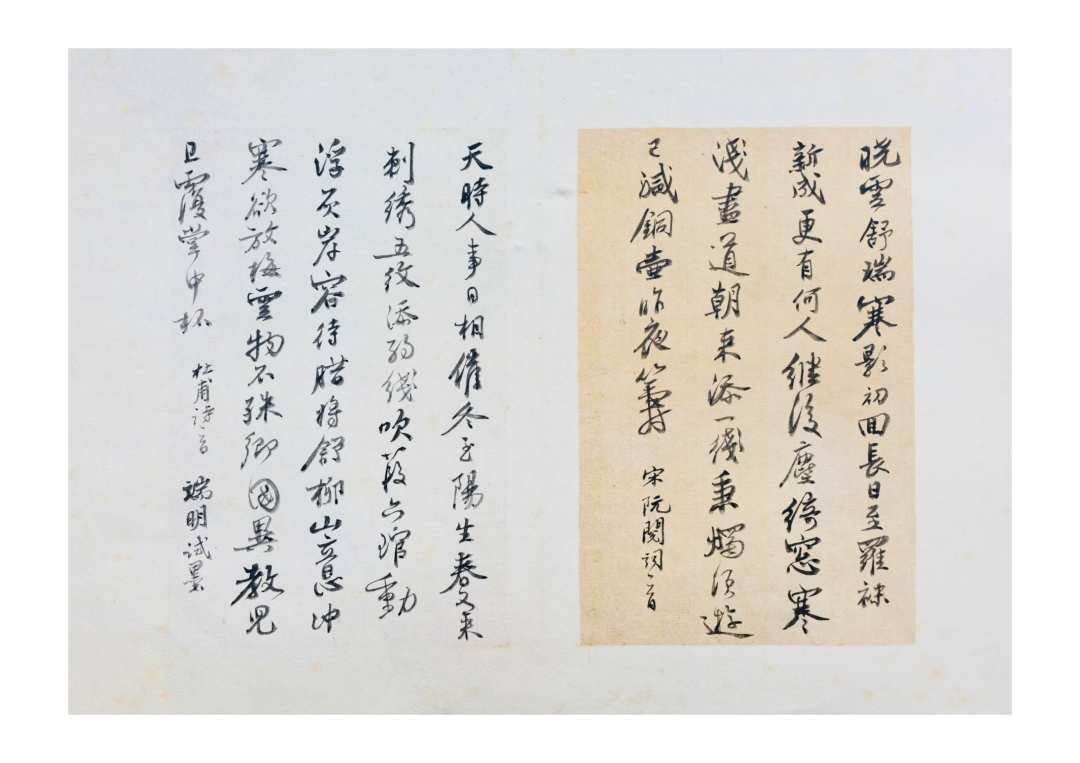 晓雲舒瑞寒影初回長日至羅袜
新成更有何人继後塵绮窓寒
淺盡道朝来添一綫秉燭须遊
已減銅壷昨夜籌 宋阮閱詞一首
天時人事日相催冬至陽生春又来
刺綉五纹添弱綫吹葭六琯動
浮灰岸容待腊将舒柳山意冲
寒欲放梅雲物不殊卿國異教児
且覆掌中杯 杜甫詩一首 端明試墨